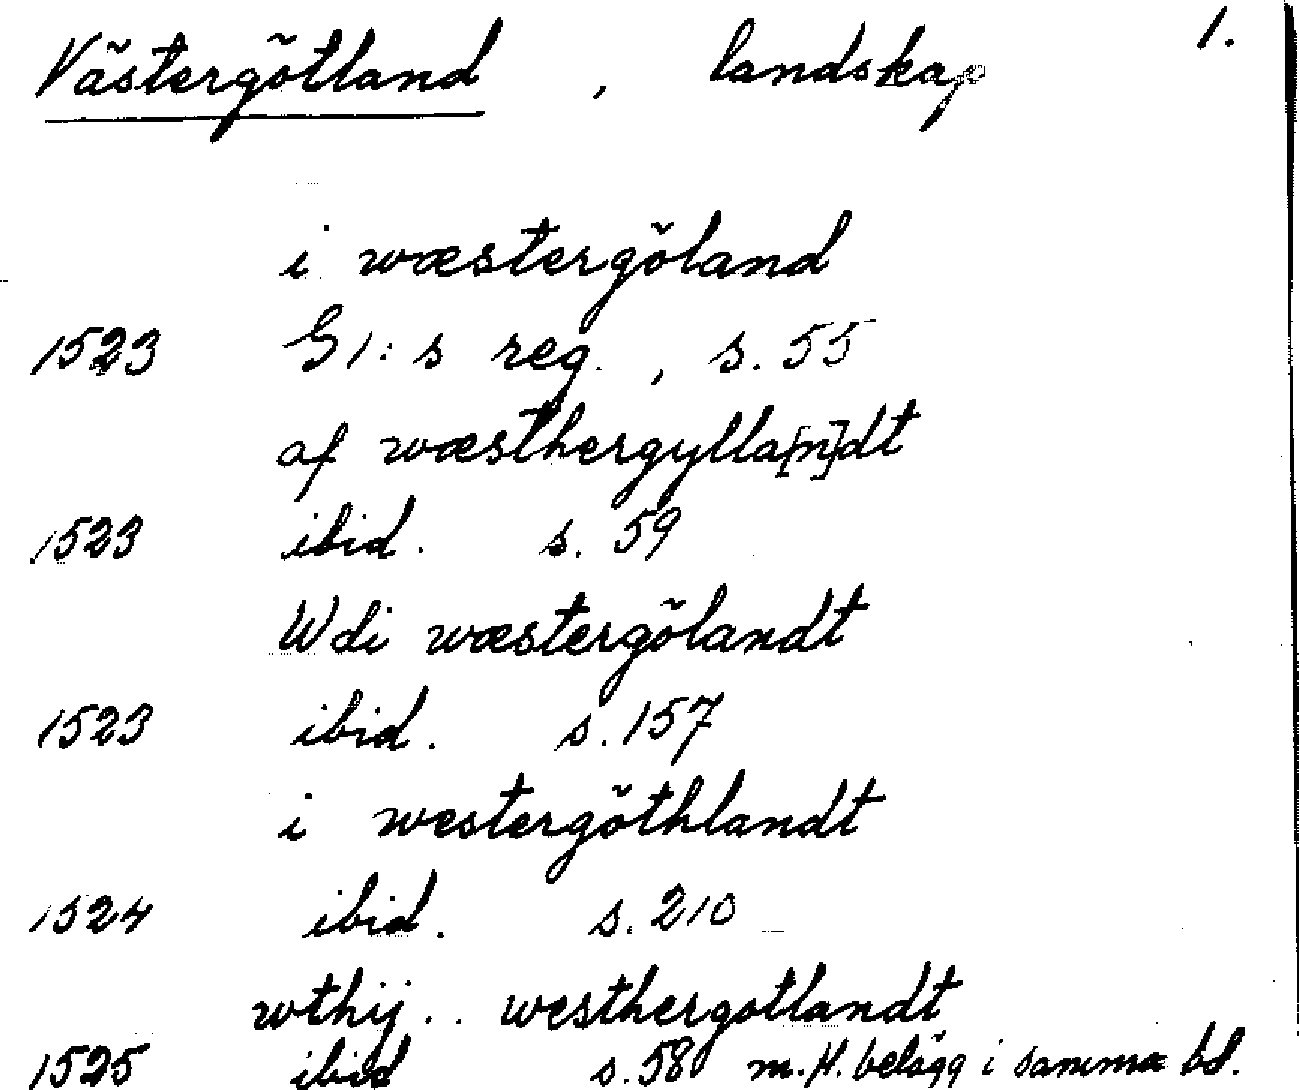 Västergötland, landskap 1.
i wæstergöland
1523 G1:s reg., s. 55
af wæsthergylla[n]dt
1523 ibid. s. 59
Wdi wæstergölandt
1523 ibid. s. 157
i westergöthlandt
1524 ibid. s. 210
wthij.. westhergotlandt
1525 ibid s. 58 m. fl. belägg i samma bd.